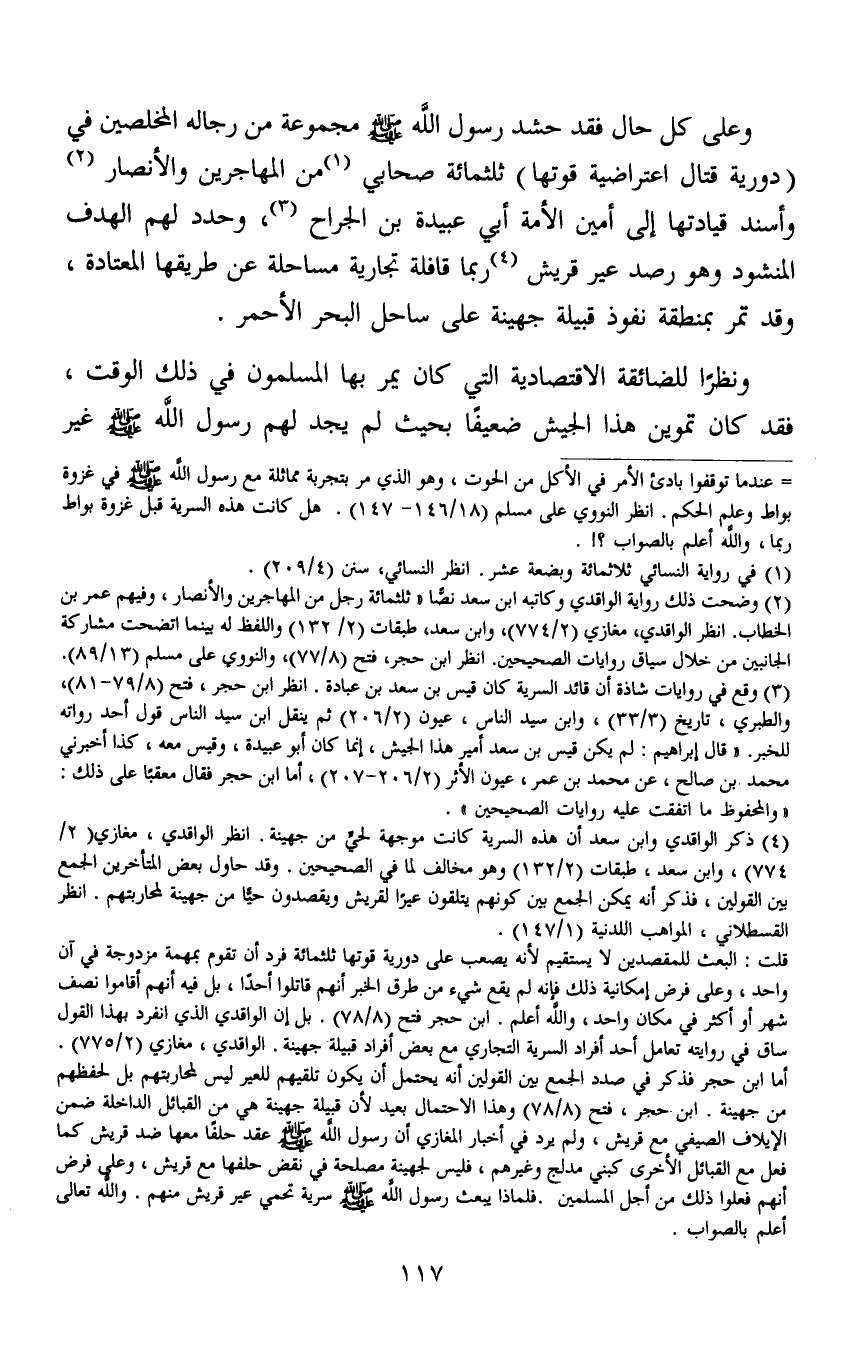 وعلى كل حال فقد حشد رسول اللَّه ﷺ مجموعة من رجاله المخلصين في
( دورية قتال اعتراضية قوتها ) ثلثمائة صحابي (١)من المهاجرين والأنصار (٢)
وأسند قيادتها إلى أمين الأمة أبي عبيدة بن الجراح (٣)، وحدد لهم الهدف
المنشود وهو رصد عير قريش (٤)ربما قافلة تجارية مساحلة عن طريقها المعتادة ،
وقد تمر بمنطقة نفوذ قبيلة جهينة على ساحل البحر الأحمر .
ونظرًا للضائقة الاقتصادية التي كان يمر بها المسلمون في ذلك الوقت ،
فقد كان تموين هذا الجيش ضعيفًا بحيث لم يجد لهم رسول اللَّه ﷺ غير
= عندما توقفوا بادئ الأمر في الأكل من الحوت ، وهو الذي مر بتجربة مماثلة مع رسول اللَّه ﷺ في غزوة
بواط وعلم الحكم . انظر النووي على مسلم (١٤٦/١٨- ١٤٧) . هل كانت هذه السرية قبل غزوة بواط
ربما ، واللَّه أعلم بالصواب ؟! .
(١) في رواية النسائي ثلاثمائة وبضعة عشر . انظر النسائي، سنن (٢٠٩/٤) .
(٢) وضحت ذلك رواية الواقدي وكاتبه ابن سعد نصًّا « ثلثمائة رجل من المهاجرين والأنصار ، وفيهم عمر بن
الخطاب. انظر الواقدي، مغازي (٧٧٤/٢)، وابن سعد، طبقات (٢/ ١٣٢) واللفظ له بينما اتضحت مشاركة
الجانبين من خلال سياق روايات الصحيحين. انظر ابن حجر، فتح (٧٧/٨)، والنووي على مسلم (٨٩/١٣).
(٣) وقع في روايات شاذة أن قائد السرية كان قيس بن سعد بن عبادة . انظر ابن حجر ، فتح (٧٩/٨-٨١)،
والطبري ، تاريخ (٣٣/٣) ، وابن سيد الناس ، عيون (٢٠٦/٢) ثم ينقل ابن سيد الناس قول أحد رواته
للخبر. « قال إبراهيم : لم يكن قيس بن سعد أمير هذا الجيش ، إنما كان أبو عبيدة ، وقيس معه ، كذا أخبرني
محمد بن صالح ، عن محمد بن عمر ، عيون الأثر (٢٠٦/٢-٢٠٧) ، أما ابن حجر فقال معقبًا على ذلك :
« والمحفوظ ما اتفقت عليه روايات الصحيحين » .
(٤) ذكر الواقدي وابن سعد أن هذه السرية كانت موجهة لحيٍّ من جهينة . انظر الواقدي ، مغازي( ٢/
٧٧٤) ، وابن سعد ، طبقات (١٣٢/٢) وهو مخالف لما في الصحيحين . وقد حاول بعض المتأخرين الجمع
بين القولين ، فذكر أنه يمكن الجمع بين كونهم يتلقون عيرًا لقريش ويقصدون حيًّا من جهينة لمحاربتهم . انظر
القسطلاني ، المواهب اللدنية (١٤٧/١) .
قلت : البعث للمقصدين لا يستقيم لأنه يصعب على دورية قوتها ثلثمائة فرد أن تقوم بمهمة مزدوجة في آن
واحد ، وعلى فرض إمكانية ذلك فإنه لم يقع شيء من طرق الخبر أنهم قاتلوا أحدًا ، بل فيه أنهم أقاموا نصف
شهر أو أكثر في مكان واحد ، واللَّه أعلم . ابن حجر فتح (٧٨/٨) . بل إن الواقدي الذي انفرد بهذا القول
ساق في روايته تعامل أحد أفراد السرية التجاري مع بعض أفراد قبيلة جهينة . الواقدي ، مغازي (٧٧٥/٢) .
أما ابن حجر فذكر في صدد الجمع بين القولين أنه يحتمل أن يكون تلقيهم للعير ليس لمحاربتهم بل لحفظهم
من جهينة . ابن حجر ، فتح (٧٨/٨) وهذا الاحتمال بعيد لأن قبيلة جهينة هي من القبائل الداخلة ضمن
الإيلاف الصيفي مع قريش ، ولم يرد في أخبار المغازي أن رسول اللَّه ﷺ عقد حلفًا معها ضد قريش كما
فعل مع القبائل الأخرى كبني مدلج وغيرهم ، فليس لجهينة مصلحة في نقض حلفها مع قريش ، وعلى فرض
أنهم فعلوا ذلك من أجل المسلمين .فلماذا يبعث رسول اللَّه ﷺ سرية تحمي عير قريش منهم . واللَّه تعالى
أعلم بالصواب .
١١٧